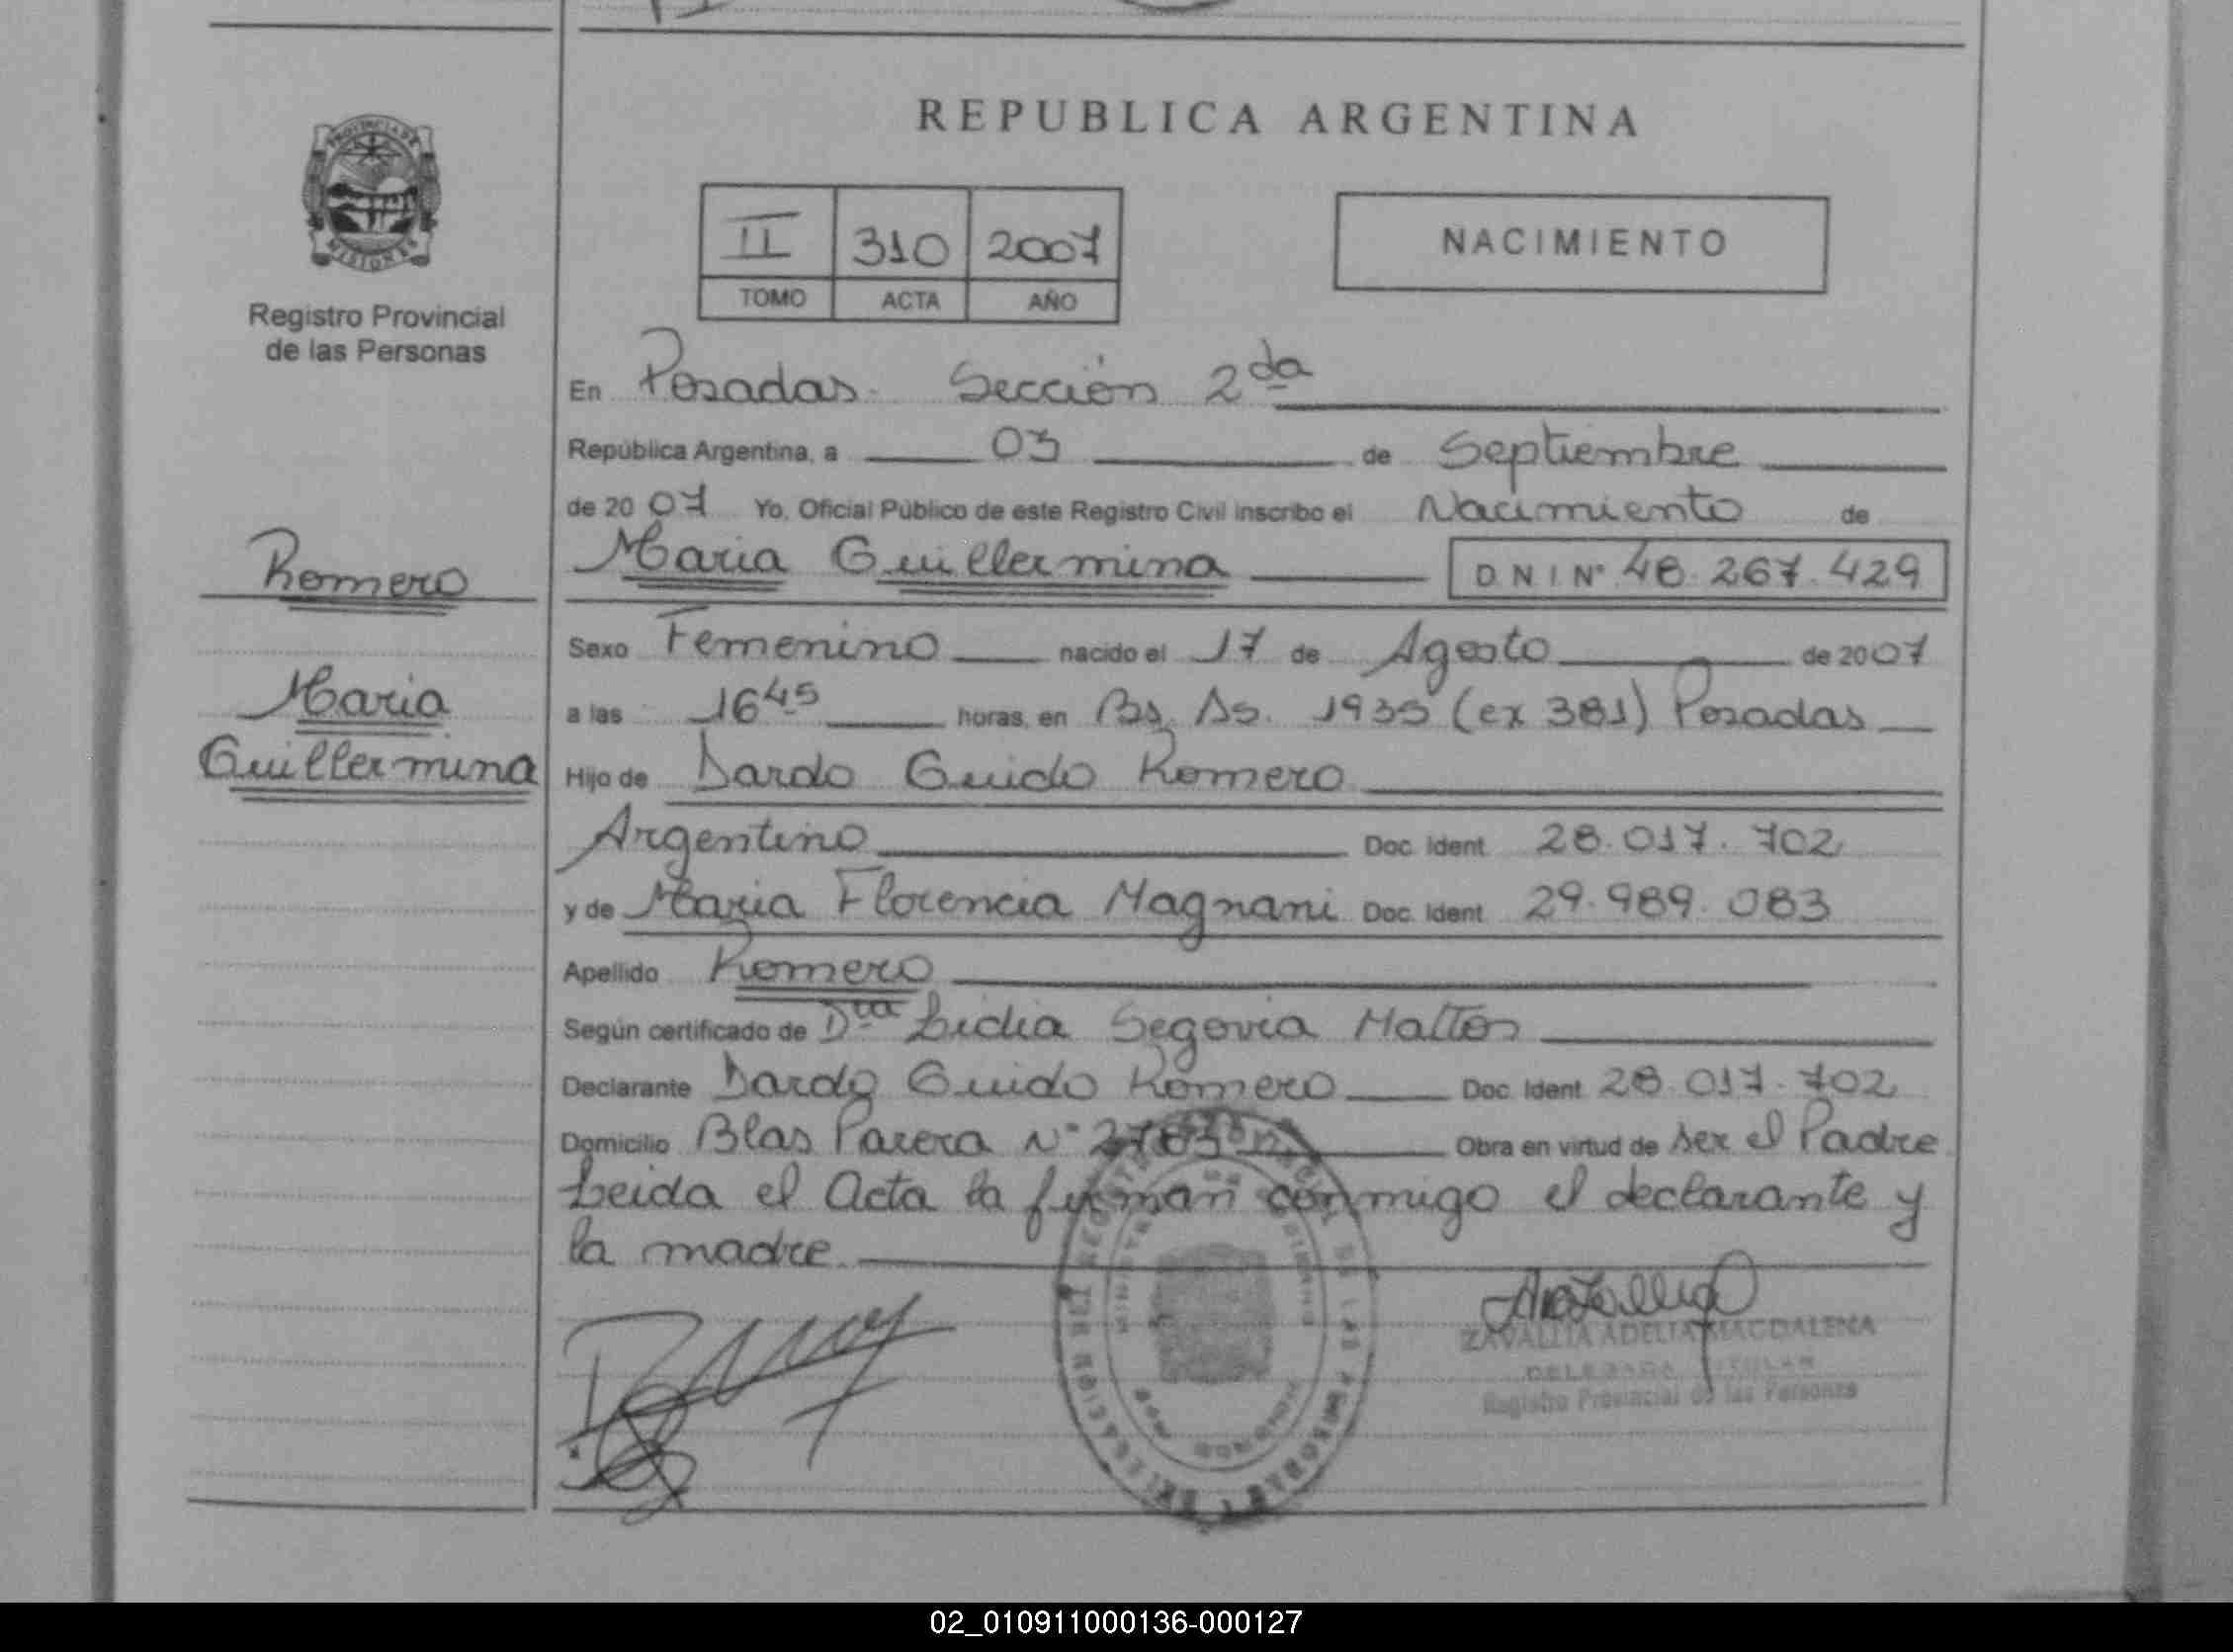 REPUBLICA ARGENTINA
PROVINCIA DE MISIONES
Registro Provincial
de las Personas
II 310 2007
TOMO ACTA AÑO
NACIMIENTO
En Posadas. Sección 2da
República Argentina, a 03 de Septiembre
de 20 07 Yo, Oficial Público de este Registro Civil inscribo el Nacimiento de
Romero
Maria Guillermina D N I Nº 48.267.429
Sexo Femenino nacido el 17 de Agosto de 2007
Maria
a las 16 45 horas, en Bs. As. 1935 (ex 381) Posadas
Guillermina
Hijo de Dardo Guido Romero
Argentino Doc. Ident. 28.017.702
y de Maria Florencia Magnani Doc. Ident. 29.989.083
Apellido Romero
Según certificado de Dra Lidia Segovia Mattos
Declarante Dardo Guido Romero Doc. Ident. 28.017.702
Domicilio Blas Parera Nº Obra en virtud de ser el Padre
Leida el Acta la firman conmigo el declarante y
la madre.
ZAVALLIA ADELIA MAGDALENA
DELEGADA TITULAR
Registro Provincial de las Personas
02_010911000136-000127